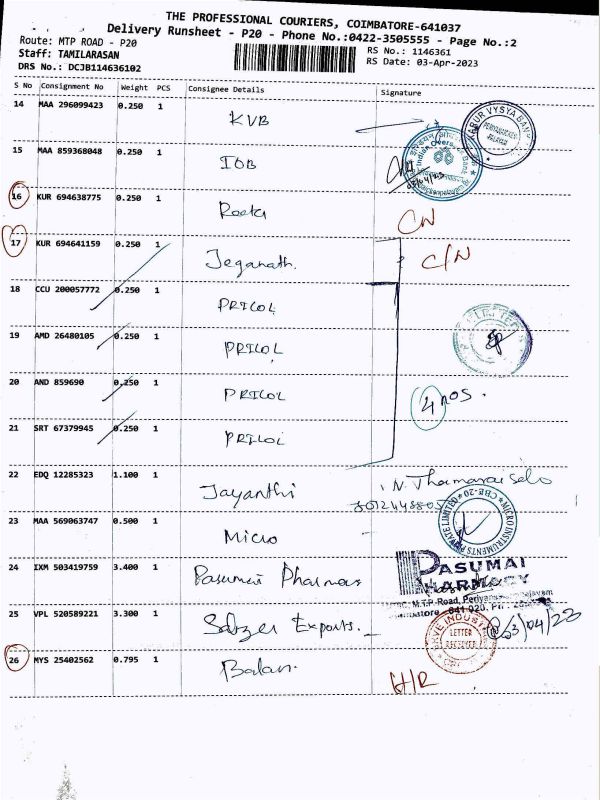 THE PROFESSIONAL COURIERS, COIMBATORE-641037
Delivery Runsheet - P20 - Phone No.:0422-3505555 - Page No.:2
Route: MTP ROAD - P20
RS No.: 1146361
Staff: TAMILARASAN
RS Date: 03-Apr-2023
DRS No.: DCJB114636102
S No Consignment No Weight PCS Consignee Details Signature
14 MAA 296099423 0.250 1 KVB
KARUR VYSYA BANK
15 MAA 859368048 0.250 1 IOB
Indian Overseas Bank
16 KUR 694638775 0.250 1
CN
17 KUR 694641159 0.250 1 Jeganath. C/N
18 CCU 200057772 0.250 1 PRICOL
19 AMD 26480105 0.250 1 PRICOL
LIMITED
20 AND 859690 0.250 1 PRICOL
4 nos.
21 SRT 67379945 0.250 1 PRICOL
22 EDQ 12285323 1.100 1 Jayanthi N. Thamarai Selo
23 MAA 569063747 0.500 1 Micro
MICRO INSTRUMENTS PRIVATE LIMITED CBE-20
24 IXM 503419759 3.400 1 Pasumai Pharmacy
PASUMAI
PHARMACY
M.T.P. Road,
641 020.
25 VPL 520589221 3.300 1 Salzer Exports.
03/04/23
LETTER
RECEIVED
26 MYS 25402562 0.795 1 Balan.
H/R